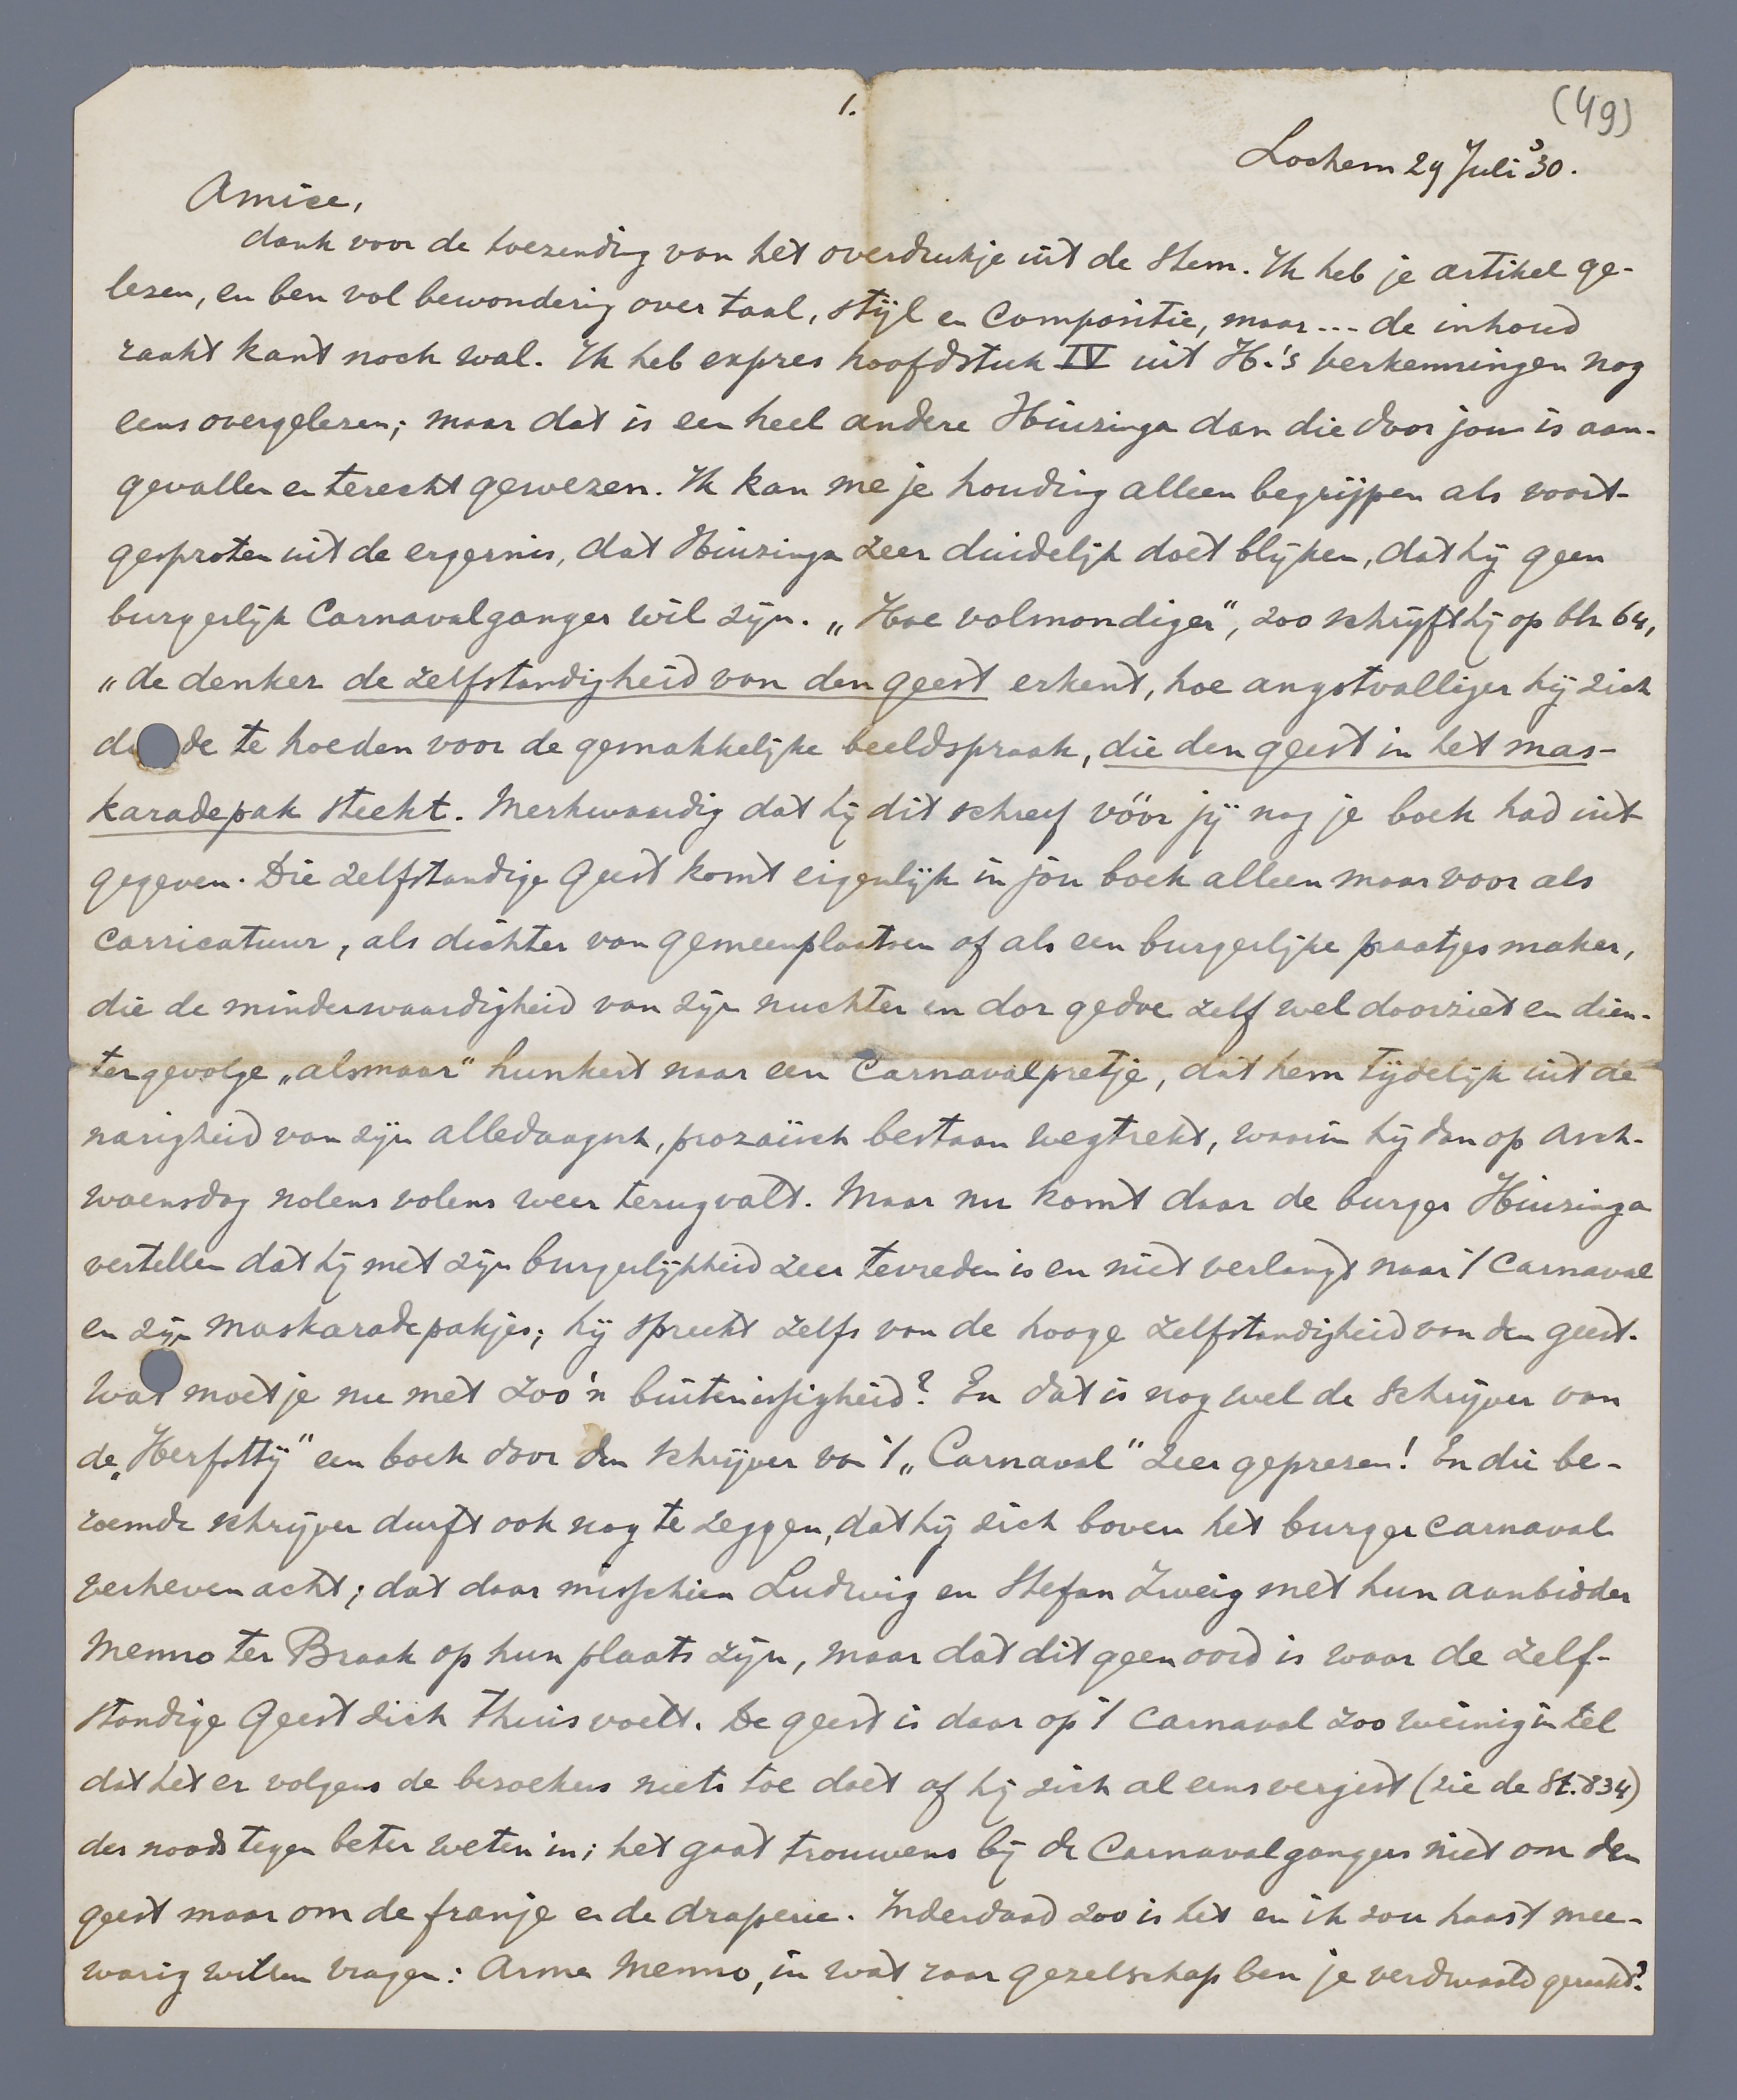 1.
(49)
Lochem 29 Juli '30.
Amice,
dank voor de toezending van het overdrukje uit de Stem. Ik heb je artikel ge-
lezen, en ben vol bewondering over taal, stijl en compositie, maar... de inhoud
raakt kant noch wal. Ik heb expres hoofdstuk IV uit H.'s verkenningen nog
eens overgelezen; maar dat is een heel andere Huizinga dan die door jou is aan-
gevallen en terecht gewezen. Ik kan me je houding alleen begrijpen als voort-
gesproten uit de ergernis, dat Huizinga zeer duidelijk doet blijken, dat hij geen
burgerlijk Carnavalganger wil zijn. „Hoe volmondiger", zoo schrijft hij op blz 64,
„de denker de zelfstandigheid van den geest erkent, hoe angstvalliger hij zich
de te hoeden voor de gemakkelijke beeldspraak, die den geest in het mas-
karadepak steekt. Merkwaardig dat hij dit schreef vóór jij nog je boek had uit-
gegeven. Die zelfstandige Geest komt eigenlijk in jou boek alleen maar voor als
carricatuur, als dichter van gemeenplaatsen of als een burgerlijke praatjesmaker,
die de minderwaardigheid van zijn nuchter en dor gedoe zelf wel doorziet en dien-
tengevolge „alsmaar" hunkert naar een Carnavalpretje, dat hem tijdelijk uit de
narigheid van zijn alledaagsch, prozaïsch bestaan wegtrekt, waarin hij dan op Asch-
woensdag nolens volens weer terugvalt. Maar nu komt daar de burger Huizinga
vertellen dat hij met zijn burgerlijkheid zeer tevreden is en niet verlangt naar 't Carnaval
en zijn maskaradepakjes; hij spreekt zelfs van de hooge zelfstandigheid van den geest.
Wat moet je nu met zoo'n buitenissigheid? En dat is nog wel de schrijver van
de „Herfsttij" een boek door den schrijver van 't „Carnaval" zeer geprezen! En die be-
roemde schrijver durft ook nog te zeggen, dat hij zich boven het burgercarnaval
verheven acht; dat daar misschien Ludwig en Stefan Zweig met hun aanbidder
Menno ter Braak op hun plaats zijn, maar dat dit geen oord is waar de zelf-
standige Geest zich thuis voelt. De geest is daar op 't Carnaval zoo weinig in tel
dat het er volgens de bezoekers niets toe doet of hij zich al eens vergist (zie de St. 834)
des noods tegen beter weten in; het gaat trouwens bij de Carnavalgangers niet om den
geest maar om de franje en de draperie. Inderdaad zoo is het en ik zou haast mee-
warig willen vragen: Arme Menno, in wat raar gezelschap ben je verdwaald geraakt?